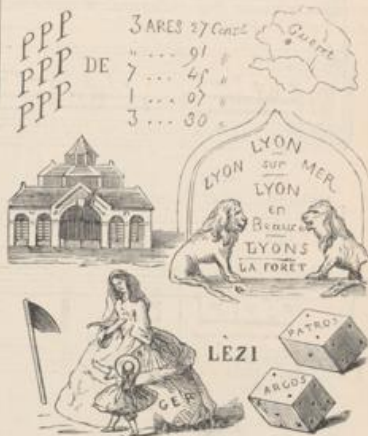 PPP
PPP
PPP
DE
3 ARES 27 Cent.
" ... 91 "
7 ... 45 "
1 ... 07 "
3 ... 30 "
Gueret
LYON
LYON sur MER
LYON
en
Beauce
LYONS
LA FORÊT
GER
LÈZI
PATROS
ARGOS